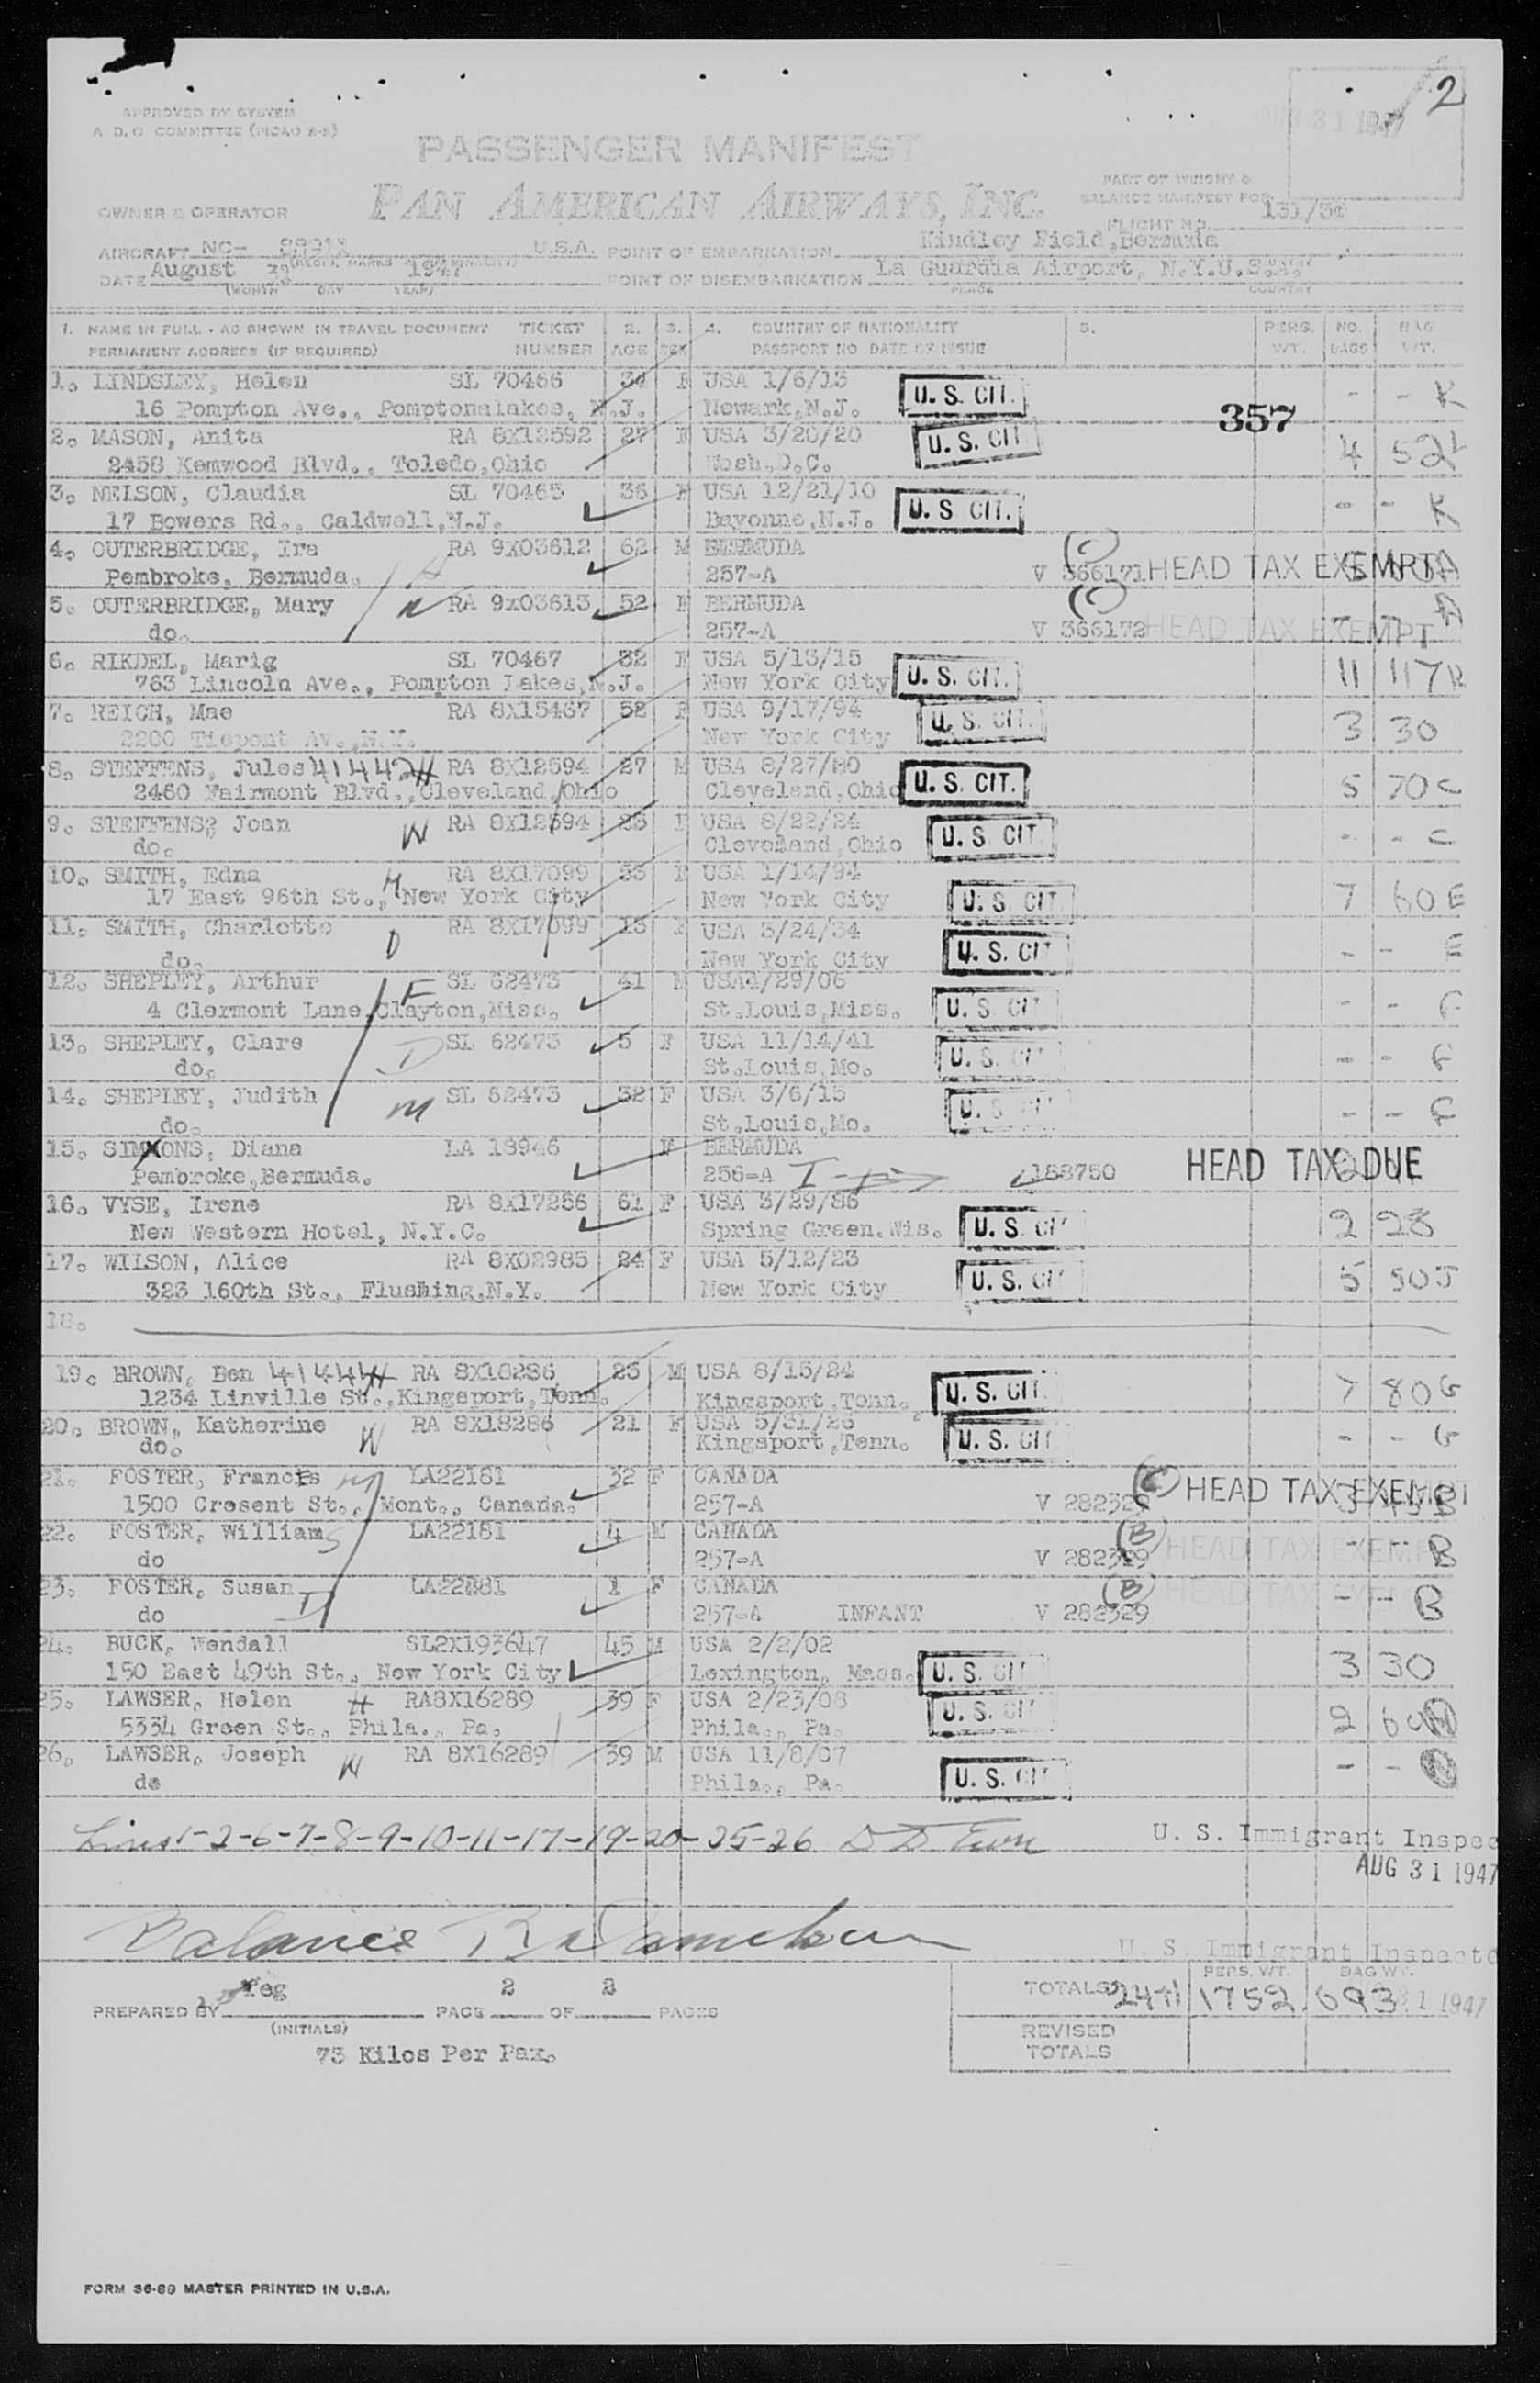 2
APPROVED BY SYSTEM
A. D. C. COMMITTEE (PICAO R-5)
31 1947
PASSENGER MANIFEST
PAN AMERICAN AIRWAYS, INC.
PART OF WEIGHT &
BALANCE MANIFEST FOR
OWNER & OPERATOR
FLIGHT NO. 131/30
AIRCRAFT NC- U.S.A. POINT OF EMBARKATION Kindley Field, Bermuda
DATE August 1947 POINT OF DISEMBARKATION La Guardia Airport, N.Y.U.S.A.
(MONTH DAY YEAR) PLACE COUNTRY
1. NAME IN FULL - AS SHOWN IN TRAVEL DOCUMENT TICKET 2. 3. 4. COUNTRY OF NATIONALITY 5. PERS. NO. BAG
PERMANENT ADDRESS (IF REQUIRED) NUMBER AGE SEX PASSPORT NO DATE OF ISSUE WT. BAGS WT.
1. LINDSLEY, Helen SL 70466 F USA 1/6/13 U. S. CIT. - - K
16 Pompton Ave., Pomptonalakes, N.J. Newark, N.J.
357
2. MASON, Anita RA 8X12592 27 F USA 3/20/20 U. S. CIT. 4 52 L
2458 Kemwood Blvd., Toledo, Ohio Wash.D.C.
3. NELSON, Claudia SL 70465 36 F USA 12/21/10 U. S CIT. - - K
17 Bowers Rd., Caldwell, N.J. Bayonne, N.J.
4. OUTERBRIDGE, Ira RA 9X03612 62 M BERMUDA (C)
Pembroke, Bermuda. H 257-A V 366171 HEAD TAX EXEMPT A
5. OUTERBRIDGE, Mary W RA 9x03613 52 F BERMUDA (C) A
do. 257-A V 366172 HEAD TAX EXEMPT
6. RIKDEL, Marig SL 70467 32 F USA 5/13/15 U. S. CIT. 11 117 K
763 Lincoln Ave., Pompton Lakes, N.J. New York City
7. REICH, Mae RA 8X15467 52 F USA 9/17/94 U. S. CIT. 3 30
2200 Av., N.Y. New York City
8. STEFFENS, Jules 41442 H RA 8X12594 27 M USA 8/27/20 U. S. CIT. 5 70 C
2460 Fairmont Blvd., Cleveland, Ohio Cleveland, Ohio
9. STEFFENS, Joan W RA 8X12594 23 F USA 8/22/24 U. S. CIT - - C
do. Cleveland, Ohio
10. SMITH, Edna M RA 8X17099 53 F USA 1/14/94 U. S. CIT 7 60 E
17 East 96th St., New York City New York City
11. SMITH, Charlotte D RA 8X17099 13 F USA 3/24/34 U. S. CIT - - E
do. New York City
12. SHEPLEY, Arthur F SL 62473 41 M USA4/29/06 U. S. CIT - - F
4 Clermont Lane, Clayton, Miss. St.Louis, Miss.
13. SHEPLEY, Clare D SL 62473 5 F USA 11/14/41 U. S. CIT - - F
do. St.Louis, Mo.
14. SHEPLEY, Judith M SL 62473 32 F USA 3/6/15 U. S. CIT - - F
do. St.Louis, Mo.
15. SIMMONS, Diana LA 18946 F BERMUDA
Pembroke, Bermuda. 256-A 158750 HEAD TAX DUE
16. VYSE, Irene RA 8X17256 61 F USA 3/29/86 U. S. CIT 2 28
New Western Hotel, N.Y.C. Spring Green, Wis.
17. WILSON, Alice RA 8X02985 24 F USA 5/12/23 U. S. CIT 5 50 J
323 160th St., Flushing, N.Y. New York City
18.
19. BROWN, Ben 41444 H RA 8X18286 23 M USA 8/15/24 U. S. CIT. 7 80 G
1234 Linville St., Kingsport, Tenn. Kingsport, Tenn.
20. BROWN, Katherine W RA 8X18286 21 F USA 5/31/26 U. S. CIT - - G
do. Kingsport, Tenn.
21. FOSTER, Francis M LA22181 32 F CANADA (C)
1500 Cresent St., Mont., Canada. 257-A V 282329 HEAD TAX EXEMPT B
22. FOSTER, William S LA22181 4 M CANADA (B)
do 257-A V 282329 HEAD TAX EXEMPT - - B
23. FOSTER, Susan D LA22181 1 F CANADA (B) HEAD TAX EXEM
do 257-A INFANT V 282329 - - B
24. BUCK, Wendall SL2X193647 45 M USA 2/2/02 3 30
150 East 49th St., New York City Lexington, Mass. U. S. CIT
25. LAWSER, Helen H RA8X16289 39 F USA 2/23/08 U. S. CIT 2 60
5334 Green St., Phila., Pa. Phila., Pa.
26. LAWSER, Joseph W RA 8X16289 39 M USA 11/8/07 U. S. CIT - -
do Phila., Pa.
Lines 1-2-6-7-8-9-10-11-17-19-20-25-26 U. S. Immigrant Inspec
AUG 31 1947
Balance U. S. Immigrant Inspecto
PERS. WT. BAG WT.
feg 2 2 TOTALS 24 1752 693 1 1947
PREPARED BY PAGE OF PAGES
(INITIALS) REVISED
TOTALS
73 Kilos Per Pax.
FORM 36-89 MASTER PRINTED IN U.S.A.